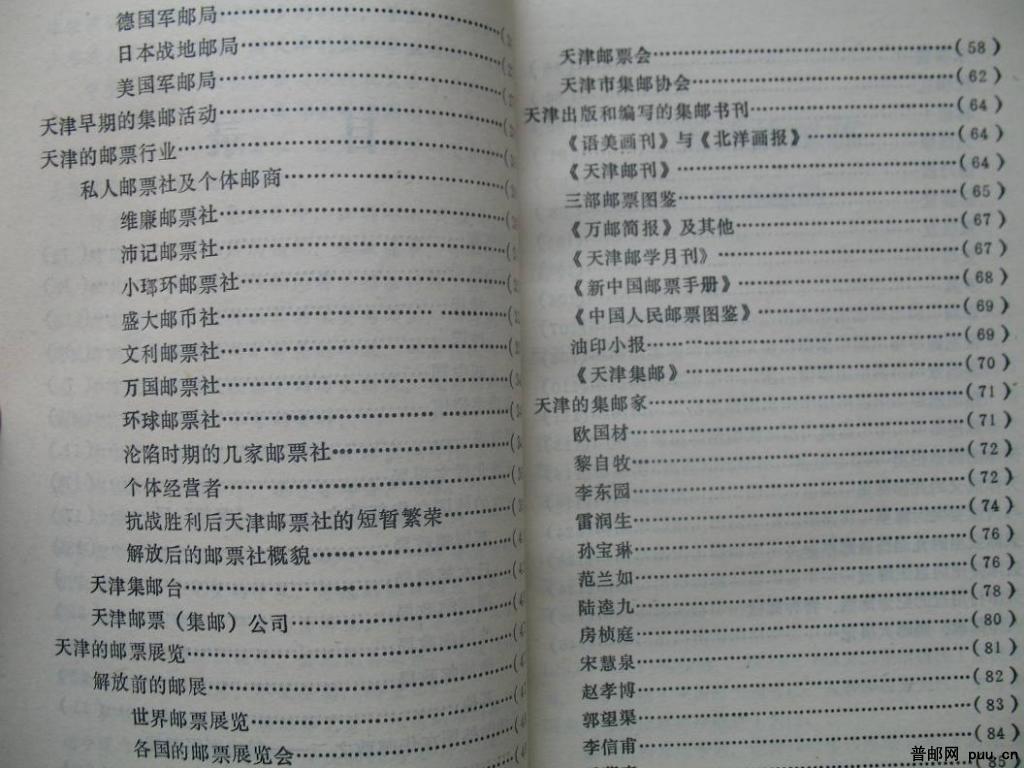 德国军邮局
日本战地邮局
美国军邮局
天津早期的集邮活动
天津的邮票行业
私人邮票社及个体邮商
维廉邮票社
沛记邮票社
小瑯环邮票社
盛大邮币社
文利邮票社
万国邮票社
环球邮票社
沦陷时期的几家邮票社
个体经营者
抗战胜利后天津邮票社的短暂繁荣
解放后的邮票社概貌
天津集邮台
天津邮票（集邮）公司
天津的邮票展览
解放前的邮展
世界邮票展览
各国的邮票展览会
天津邮票会……(58)
天津市集邮协会……(62)
天津出版和编写的集邮书刊……(64)
《语美画刊》与《北洋画报》……(64)
《天津邮刊》……(64)
三部邮票图鉴……(65)
《万邮简报》及其他……(67)
《天津邮学月刊》……(67)
《新中国邮票手册》……(68)
《中国人民邮票图鉴》……(69)
油印小报……(69)
《天津集邮》……(70)
天津的集邮家……(71)
欧国材……(71)
黎自牧……(72)
李东园……(72)
雷润生……(74)
孙宝琳……(76)
范兰如……(76)
陆逵九……(78)
房桢庭……(80)
宋慧泉……(81)
赵孝博……(82)
郭望渠……(83)
李信甫……(84)
(85)
普邮网 puu.cn